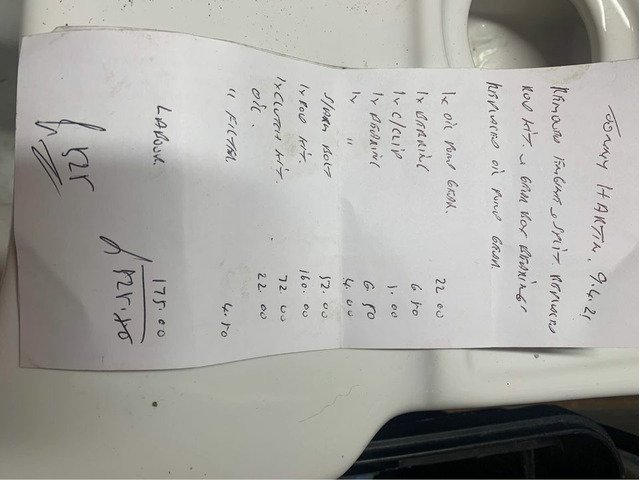 JONNY HARTIN. 9.4.21
REMOVED ENGINE, SPLIT REPLACED
ROD KIT. & GEAR BOX BEARINGS
REPLACED OIL PUMP GEAR
1x OIL PUMP GEAR. 22.00
1x BEARING 6.50
1x C/CLIP 1.00
1x BEARING 6.50
1x " 4.00
BOLT 52.00
1x ROD KIT. 160.00
1x CLUTCH KIT. 72.00
OIL. 22.00
" FILTER 4.50
LABOUR 175.00
£ 525.50
£ 525